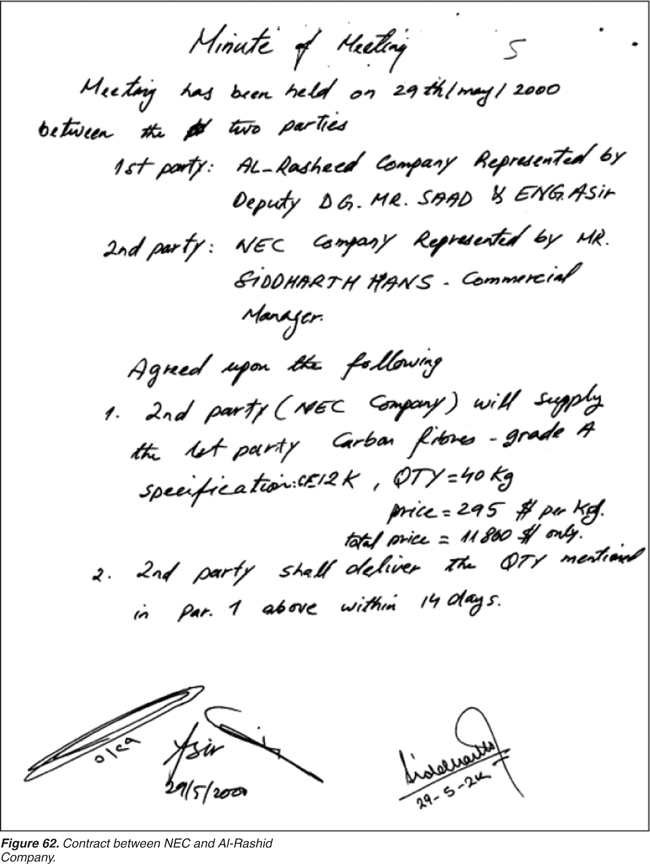 Minute of Meeting 5
Meeting has been held on 29th/may/2000
between the two parties
1st party: AL-Rasheed Company Represented by
Deputy DG. MR. SAAD & ENG. Asir
2nd party: NEC Company Represented by MR.
SIDDHARTH HANS - Commercial
Manager.
Agreed upon the following
1. 2nd party (NEC Company) will supply
the 1st party Carbon fibres - grade A
specification: 12K, QTY = 40 Kg
price = 295 $ per Kg.
total price = 11800 $ only.
2. 2nd party shall deliver the QTY mentioned
in par. 1 above within 14 days.
Asir
29/5/2000
29-5-2K
Figure 62. Contract between NEC and Al-Rashid
Company.